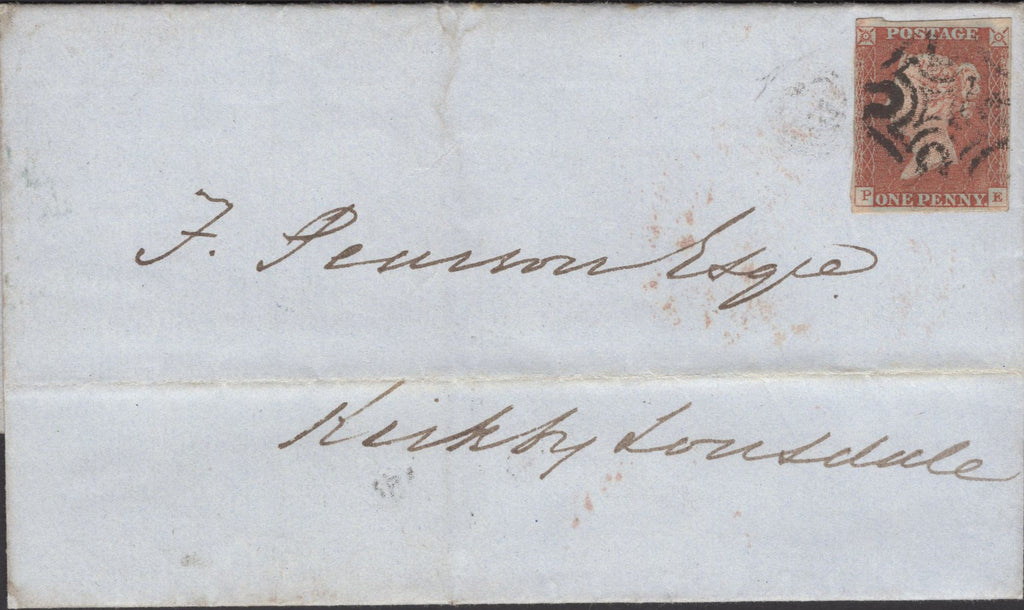 POSTAGE
P ONE PENNY E
F. Pearson Esqre
Kirkby Lonsdale